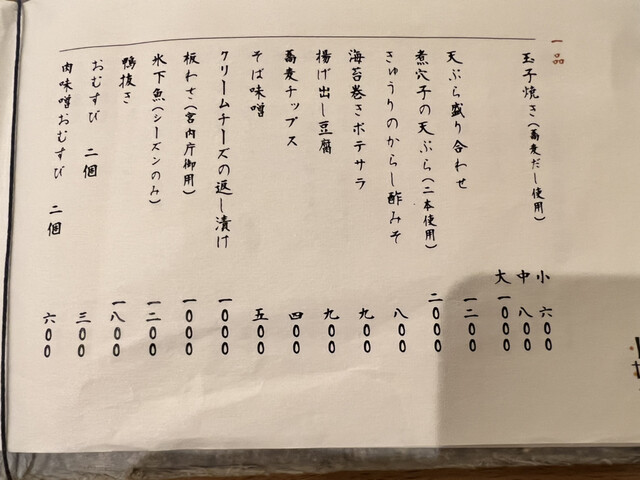 一品
玉子焼き(蕎麦だし使用)
小 六〇〇
中 八〇〇
大 一〇〇〇
天ぷら盛り合わせ 一二〇〇
煮穴子の天ぷら(二本使用) 二〇〇〇
きゅうりのからし酢みそ 八〇〇
海苔巻きポテサラ 九〇〇
揚げ出し豆腐 九〇〇
蕎麦チップス 四〇〇
そば味噌 五〇〇
クリームチーズの返し漬け 一〇〇〇
板わさ(宮内庁御用) 一〇〇〇
氷下魚(シーズンのみ) 一二〇〇
鴨抜き 一八〇〇
おむすび 二個 三〇〇
肉味噌おむすび 二個 六〇〇